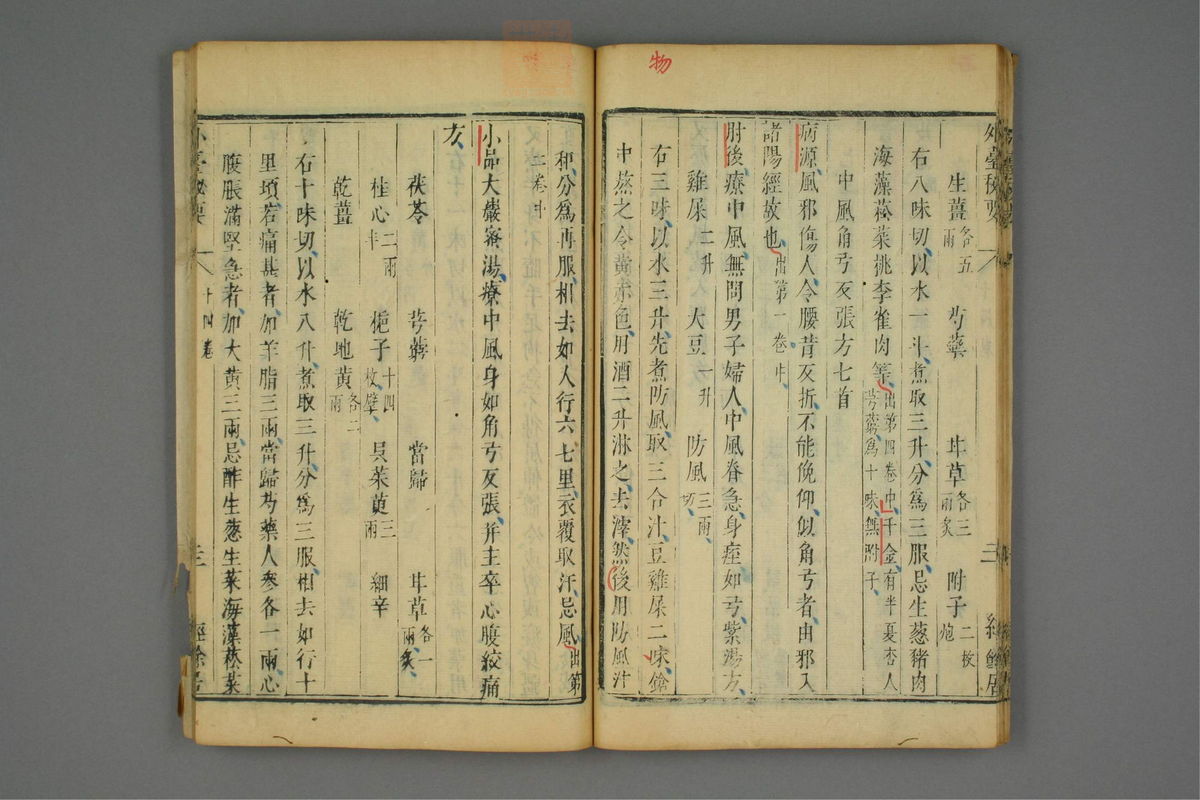 物
外臺秘要
十四卷
三
經餘居
生薑各五兩 芍藥 甘草各三兩炙 附子二枚炮
右八味切以水一斗煮取三升分爲三服忌生葱豬肉
海藻菘菜桃李雀肉等出第四卷中千金有半夏杏人芎藭爲十味無附子
中風角弓反張方七首
病源風邪傷人令腰背反折不能俛仰似角弓者由邪入
諸陽經故也出第一卷中
肘後療中風無問男子婦人中風脊急身痙如弓紫湯方
雞屎二升 大豆一升 防風三兩切
右三味以水三升先煮防風取三合汁豆雞屎二味鎗
中熬之令黃赤色用酒二升淋之去滓然後用防風汁
和分爲再服相去如人行六七里衣覆取汗忌風出第
二卷中
小品大巖蜜湯療中風身如角弓反張并主卒心腹絞痛
方
茯苓 芎藭 當歸 甘草各一兩炙
桂心二兩半 梔子十四枚擘 吳茱萸三兩 細辛
乾薑 乾地黃各二兩
右十味切以水八升煮取三升分爲三服相去如行十
里頃若痛甚者加羊脂三兩當歸芍藥人參各一兩心
腹脹滿堅急者加大黃三兩忌酢生葱生菜海藻菘菜
外臺秘要
十四卷
三
經餘居